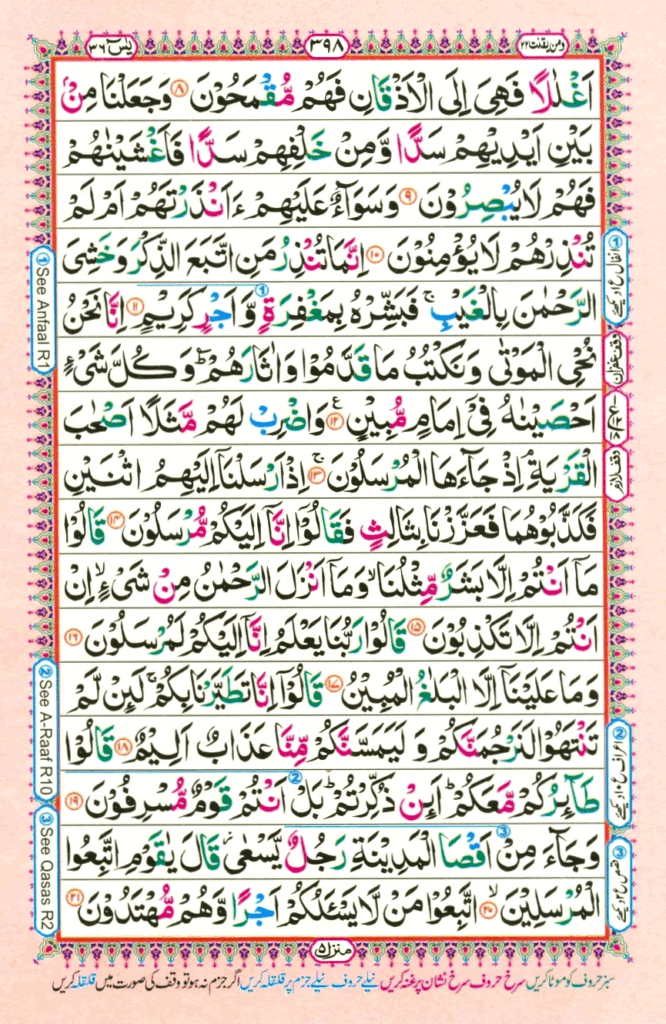 ومن يقنت ٢٢
٣٩٨
يٰسٓ ٣٦
اَغْلٰلًا فَهِىَ اِلَى الْاَذْقَانِ فَهُمْ مُّقْمَحُوْنَ ۝٨ وَجَعَلْنَا مِنْۢ
بَيْنِ اَيْدِيْهِمْ سَدًّا وَّمِنْ خَلْفِهِمْ سَدًّا فَاَغْشَيْنٰهُمْ
فَهُمْ لَا يُبْصِرُوْنَ ۝٩ وَسَوَآءٌ عَلَيْهِمْ ءَاَنْذَرْتَهُمْ اَمْ لَمْ
تُنْذِرْهُمْ لَا يُؤْمِنُوْنَ ۝١٠ اِنَّمَا تُنْذِرُ مَنِ اتَّبَعَ الذِّكْرَ وَخَشِىَ
الرَّحْمٰنَ بِالْغَيْبِ ۚ فَبَشِّرْهُ بِمَغْفِرَةٍ وَّاَجْرٍ كَرِيْمٍ ۝١١ اِنَّا نَحْنُ
نُحْىِ الْمَوْتٰى وَنَكْتُبُ مَا قَدَّمُوْا وَاٰثَارَهُمْ ؕ وَكُلَّ شَىْءٍ
اَحْصَيْنٰهُ فِىْٓ اِمَامٍ مُّبِيْنٍ ۝١٢ وَاضْرِبْ لَهُمْ مَّثَلًا اَصْحٰبَ
الْقَرْيَةِ ۘ اِذْ جَآءَهَا الْمُرْسَلُوْنَ ۝١٣ ۚ اِذْ اَرْسَلْنَاۤ اِلَيْهِمُ اثْنَيْنِ
فَكَذَّبُوْهُمَا فَعَزَّزْنَا بِثَالِثٍ فَقَالُوْۤا اِنَّاۤ اِلَيْكُمْ مُّرْسَلُوْنَ ۝١٤ قَالُوْا
مَاۤ اَنْتُمْ اِلَّا بَشَرٌ مِّثْلُنَا ۙ وَمَاۤ اَنْزَلَ الرَّحْمٰنُ مِنْ شَىْءٍ ۙ اِنْ
اَنْتُمْ اِلَّا تَكْذِبُوْنَ ۝١٥ قَالُوْا رَبُّنَا يَعْلَمُ اِنَّاۤ اِلَيْكُمْ لَمُرْسَلُوْنَ ۝١٦
وَمَا عَلَيْنَاۤ اِلَّا الْبَلٰغُ الْمُبِيْنُ ۝١٧ قَالُوْۤا اِنَّا تَطَيَّرْنَا بِكُمْ ۚ لَئِنْ لَّمْ
تَنْتَهُوْا لَنَرْجُمَنَّكُمْ وَ لَيَمَسَّنَّكُمْ مِّنَّا عَذَابٌ اَلِيْمٌ ۝١٨ قَالُوْا
طَآئِرُكُمْ مَّعَكُمْ ؕ اَئِنْ ذُكِّرْتُمْ ؕ بَلْ اَنْتُمْ قَوْمٌ مُّسْرِفُوْنَ ۝١٩
وَجَآءَ مِنْ اَقْصَا الْمَدِيْنَةِ رَجُلٌ يَّسْعٰى ز قَالَ يٰقَوْمِ اتَّبِعُوا
الْمُرْسَلِيْنَ ۝٢٠ ۙ اتَّبِعُوْا مَنْ لَّا يَسْـَٔلُكُمْ اَجْرًا وَّهُمْ مُّهْتَدُوْنَ ۝٢١
① See Anfaal R1
② See A-Raaf R10
③ See Qasas R2
① انفال ع ١ دیکھئے
وقف غفران
وقف لازم
② اعراف ع ١٠ دیکھئے
③ قصص ع ٢ دیکھئے
منزل ٥
سبز حروف کو موٹا کریں سرخ حروف سرخ نشان پر غنہ کریں نیلے حروف نیلے جزم پر قلقلہ کریں اگر جزم نہ ہو تو وقف کی صورت میں قلقلہ کریں